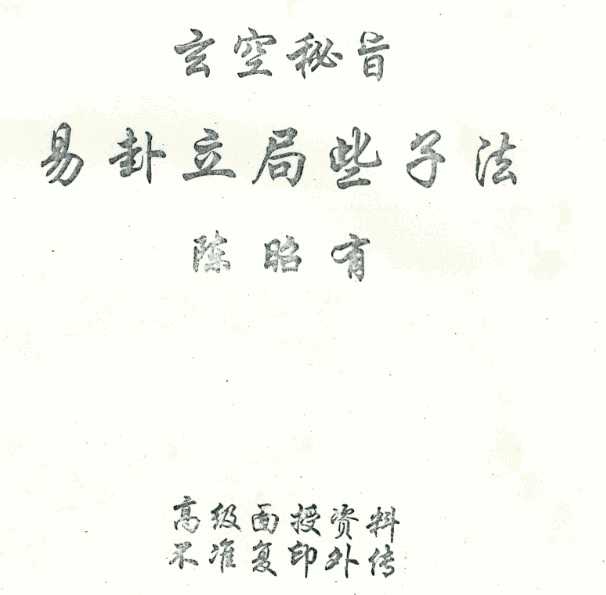 玄空秘旨
易卦立局些子法
陈昭有
高级面授资料
不准复印外传